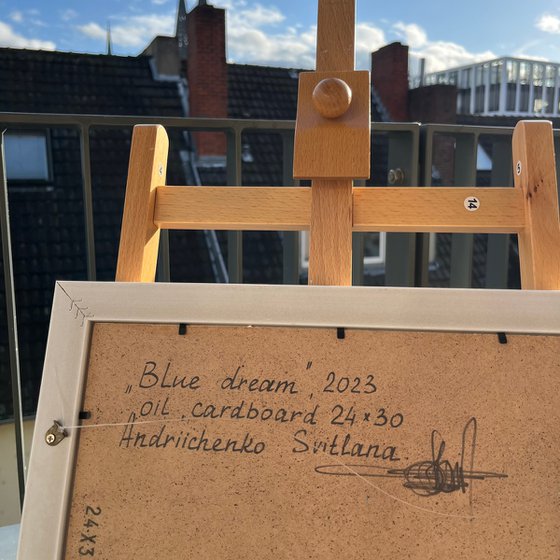 14
„Blue dream", 2023
„oil, cardboard 24×30
Andriichenko Svitlana
24×3